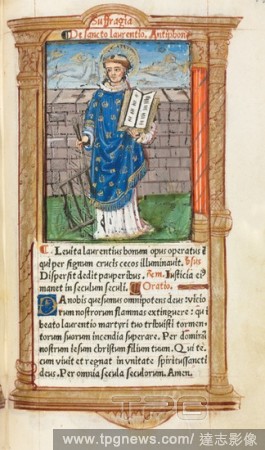 Suffragia
De sancto laurentio. Antiphona
C Leuita laurentius bonum opus operatus ē
qui per signum crucis cecos illuminauit. ƀsus
Disperſit dedit pauperibus. ℟em. Iusticia eiꝰ
manet in seculum seculi. C Oratio.
DA nobis quesumus omnipotens deus: vicio
rum nostrorum flammas extinguere: qui
beato laurentio martyri tuo tribuisti tormen-
torum suorum incendia superare. Per dominū
nostrum iesum christum filium tuum. Qui te
cum viuit et regnat in vnitate spiritussancti
deus. Per omnia secula seculorum. Amen.
www.tpgnews.com/達志影像